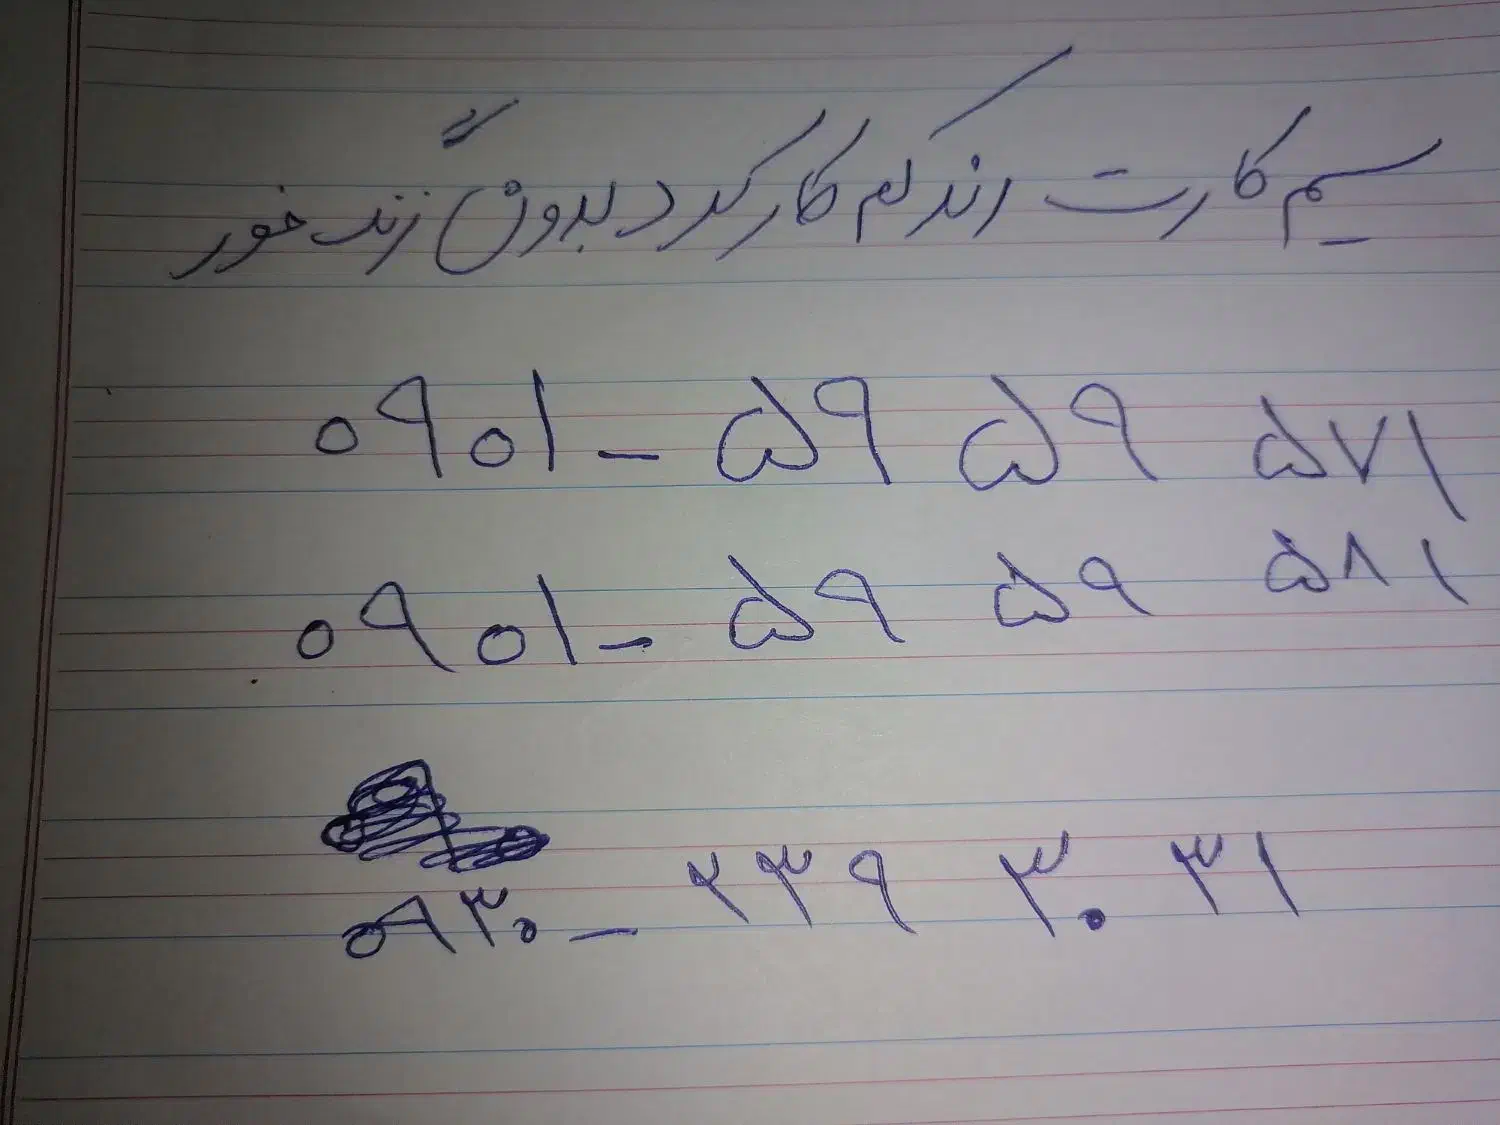 سیم کارت رند کم کارکرد بدون زنگ خور
۰۹۰۱ - ۵۹ ۵۹ ۵۷۱
۰۹۰۱ - ۵۹ ۵۹ ۵۸۱
۰۹۳۰ - ۲۳۹ ۳۰ ۳۱